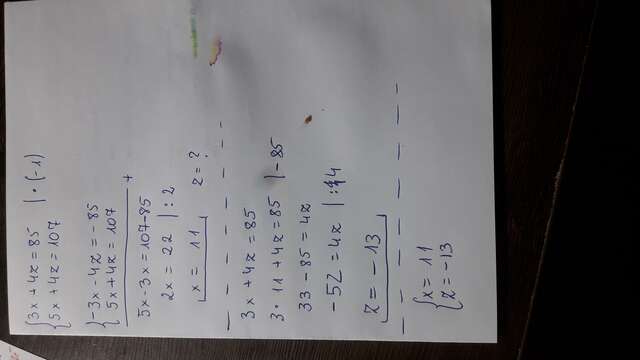 3x + 4z = 85 | • (-1)
5x + 4z = 107
-3x - 4z = -85
5x + 4z = 107 +
5x - 3x = 107-85
2x = 22 | : 2
x = 11 z = ?
3x + 4z = 85
3 • 11 + 4z = 85 | - 85
33 - 85 = 4z
- 52 = 4z | : 4
z = - 13
x = 11
z = -13